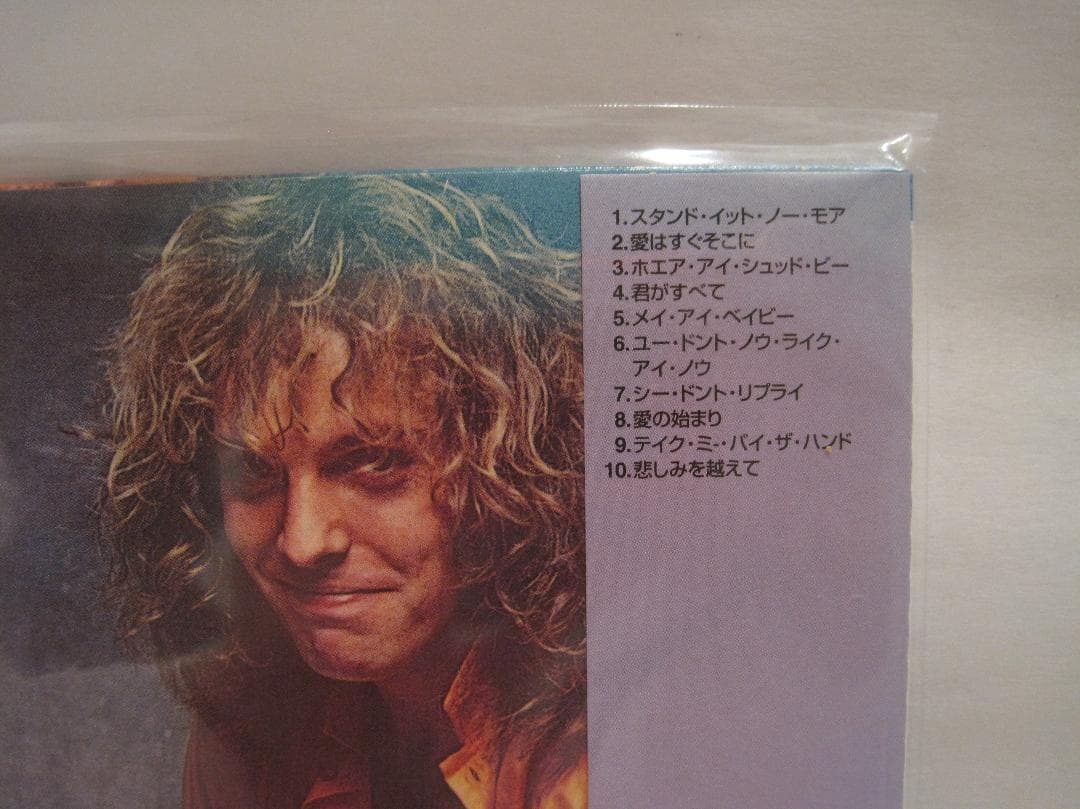 1.スタンド・イット・ノー・モア
2.愛はすぐそこに
3.ホエア・アイ・シュッド・ビー
4.君がすべて
5.メイ・アイ・ベイビー
6.ユー・ドント・ノウ・ライク・
アイ・ノウ
7.シー・ドント・リプライ
8.愛の始まり
9.テイク・ミー・バイ・ザ・ハンド
10.悲しみを越えて